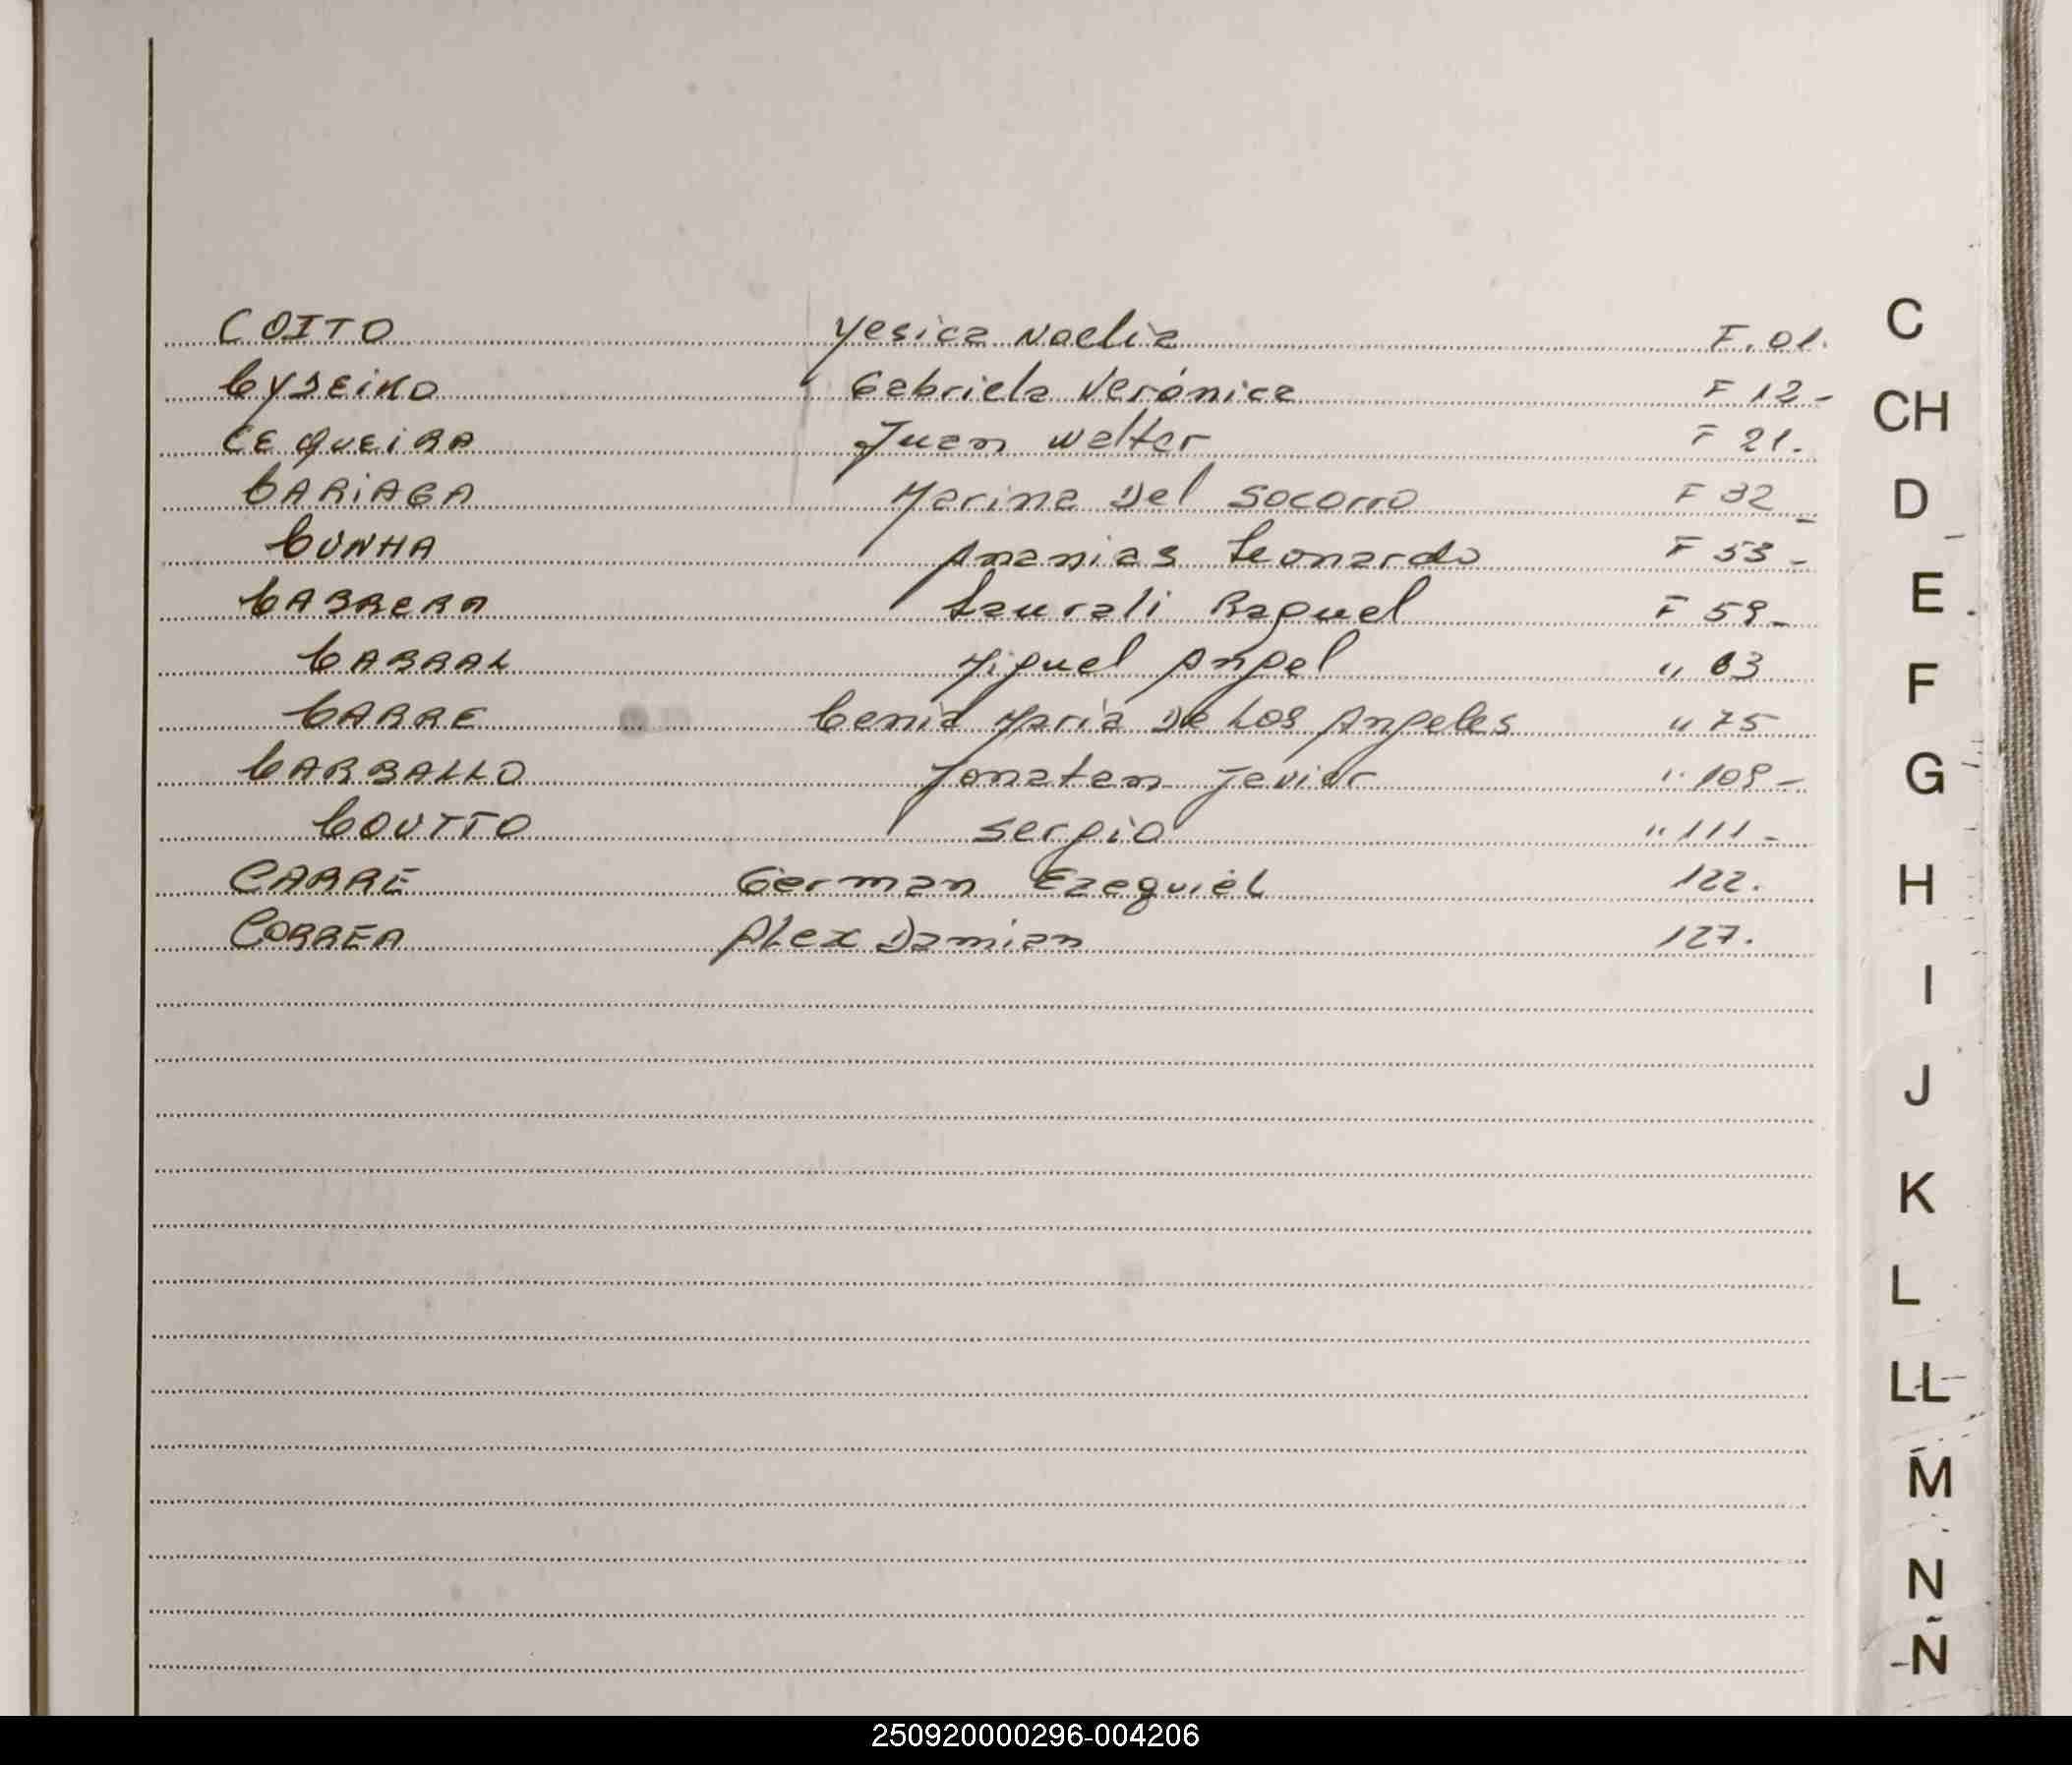 COITO Yesica Noelia F. 01.
CySEiKO Gabriela Verónica F 12-
CEqueiRA Juan Walter F 21.
CARiAGA Marina Del Socorro F 32_
CUNHA Ananias Leonardo F 53-
CABRERA Laurali Raquel F 59-
CABRAL Miguel Angel " 63
CARRE Cenia Maria De Los Angeles " 75
CARBALLO Jonatan Javier " 109-
COUTTO Sergio " 111-
CARRE German Ezequiel 122.
CORREA Alex Damian 127.
C
CH
D
E
F
G
H
I
J
K
L
LL
M
N
Ñ
250920000296-004206